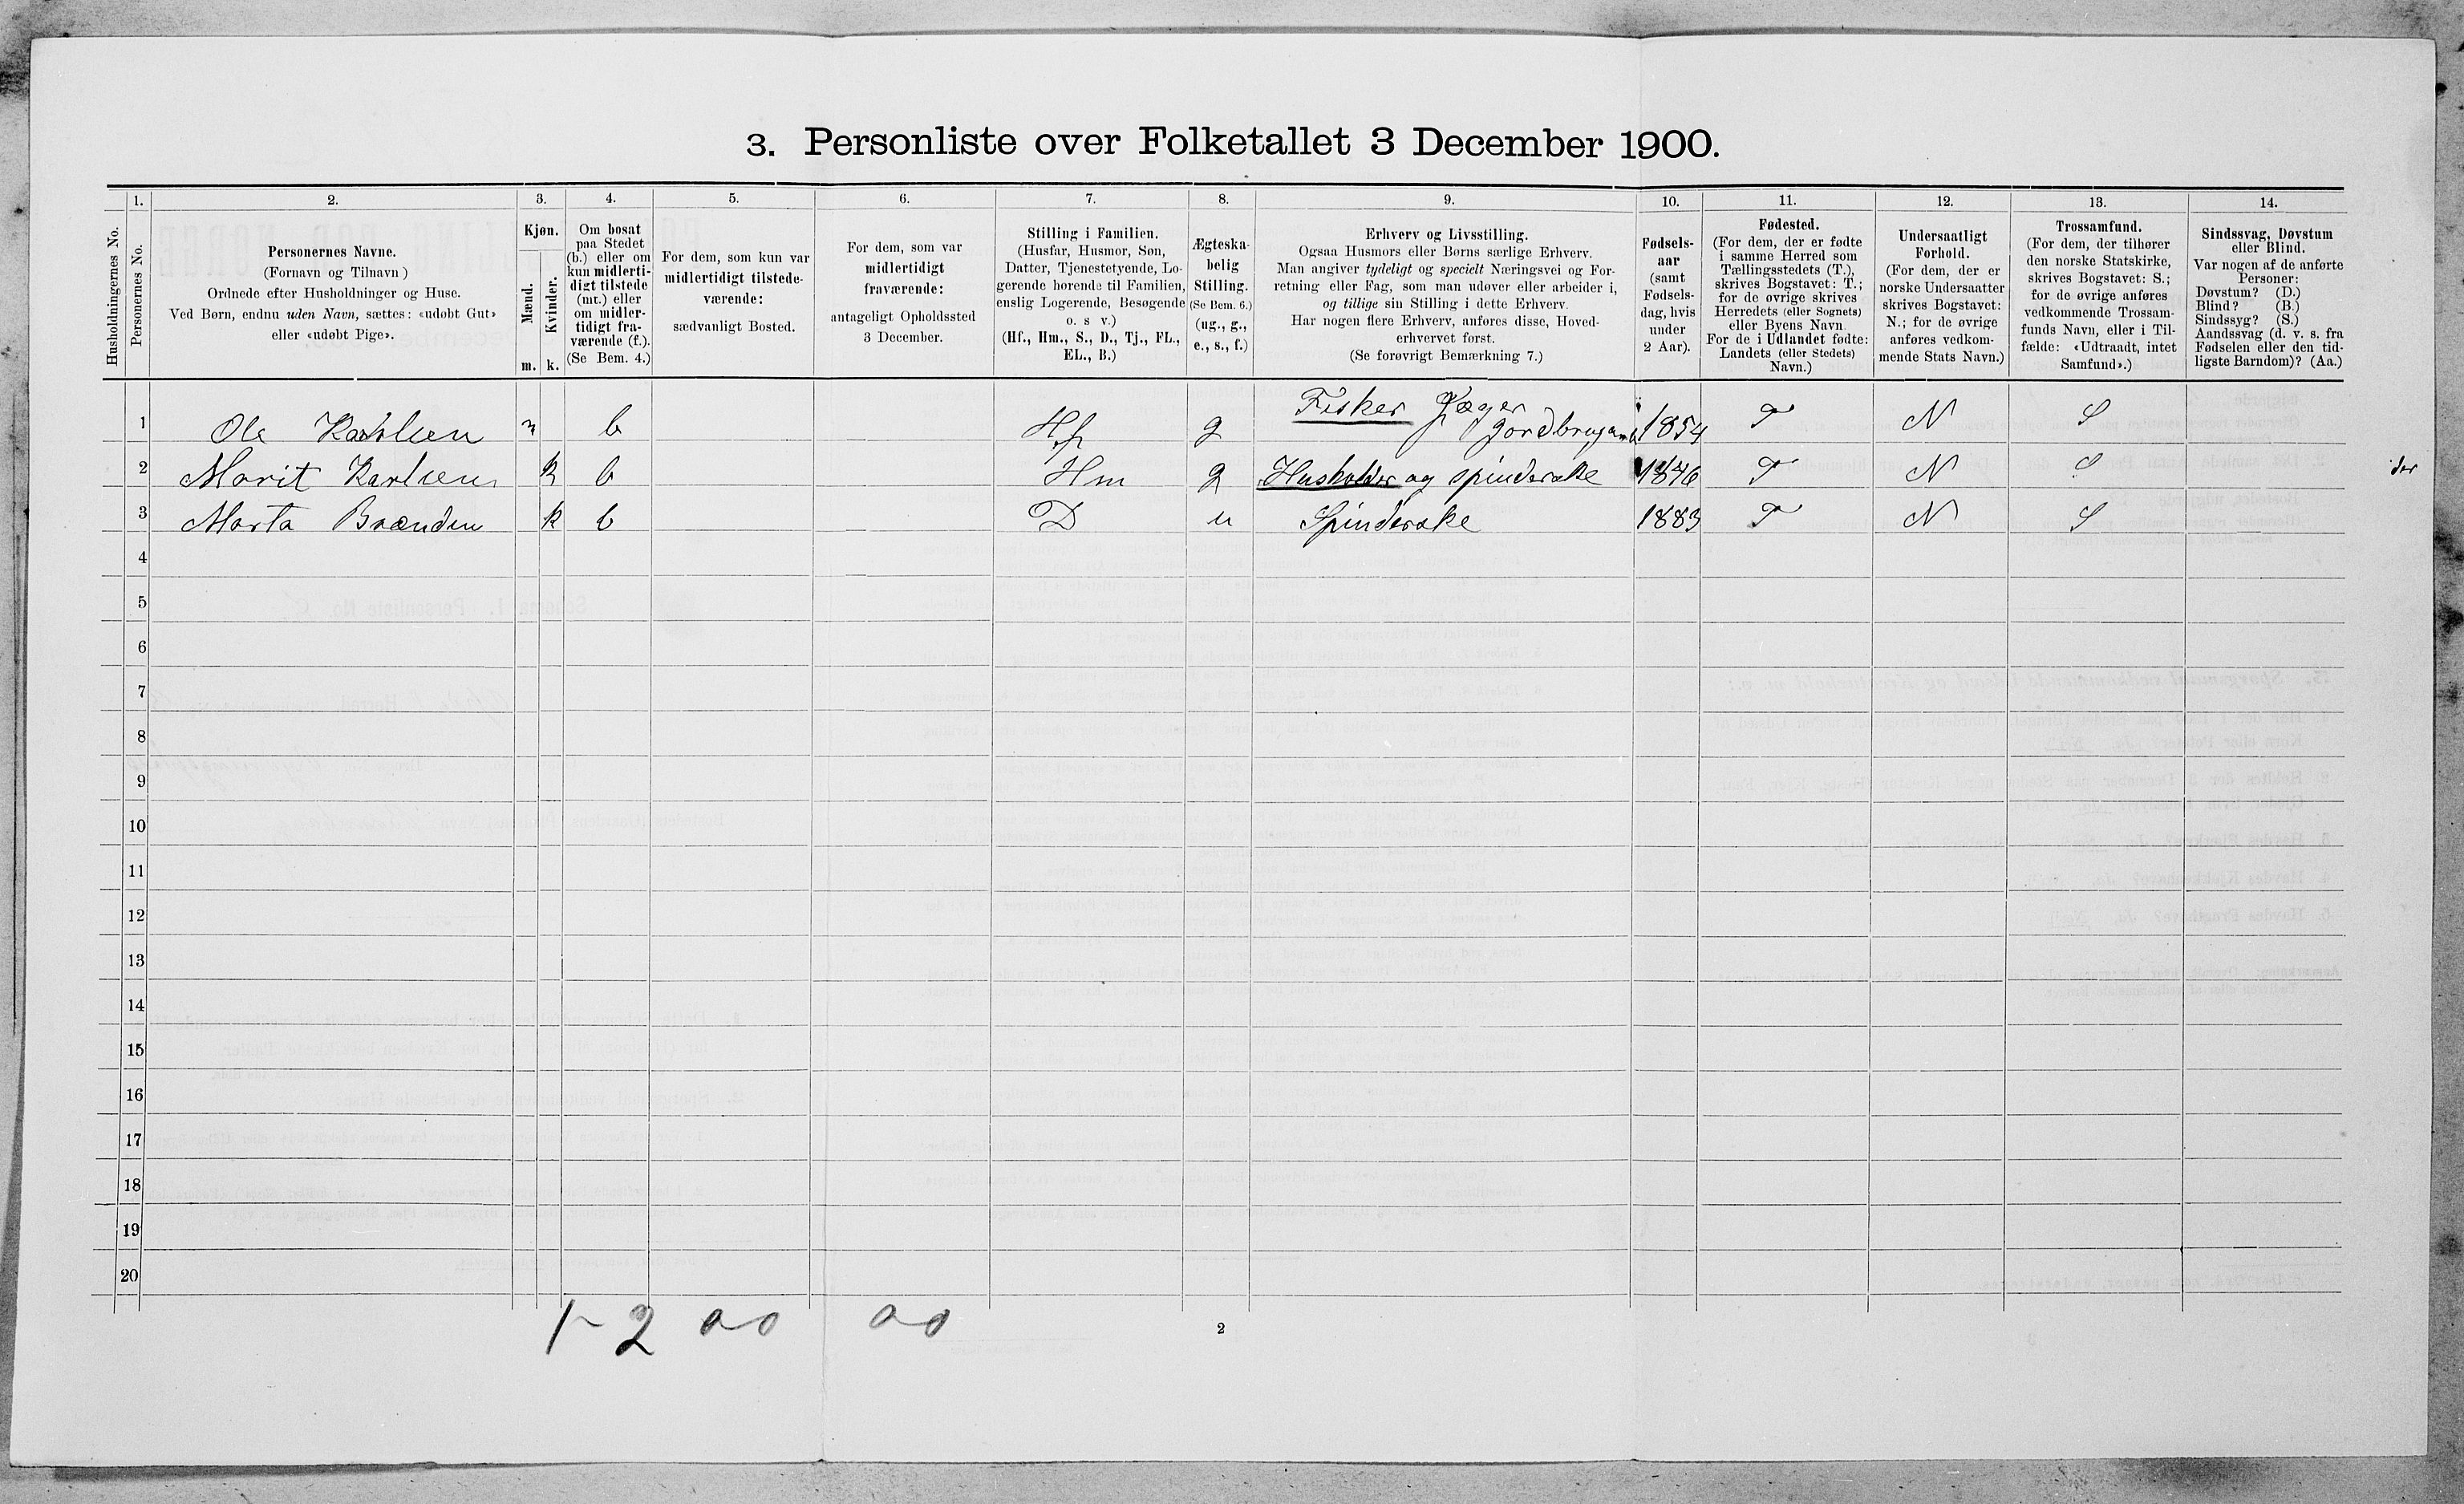 3. Personliste over Folketallet 3 December 1900.
Husholdningernes No.
1.
Personernes No.
2.
Personernes Navne.
(Fornavn og Tilnavn)
Ordnede efter Husholdninger og Huse.
Ved Børn, endnu uden Navn, sættes: «udøbt Gut»
eller «udøbt Pige».
3.
Kjøn.
Mænd.
Kvinder.
m. k.
4.
Om bosat
paa Stedet
(b.) eller om
kun midlerti-
digt tilstede
(mt.) eller
om midler-
tidigt fra-
værende (f.).
(Se Bem. 4.)
5.
For dem, som kun var
midlertidigt tilstede-
værende:
sædvanligt Bosted.
6.
For dem, som var
midlertidigt
fraværende:
antageligt Opholdssted
3 December.
7.
Stilling i Familien.
(Husfar, Husmor, Søn,
Datter, Tjenestetyende, Lo-
gerende hørende til Familien,
enslig Logerende, Besøgende
o. s v.)
(Hf., Hm., S., D., Tj., FL.,
EL., B.)
8.
Ægteska-
belig
Stilling.
(Se Bem. 6.)
(ug., g.,
e., s., f.)
9.
Erhverv og Livsstilling.
Ogsaa Husmors eller Børns særlige Erhverv.
Man angiver tydeligt og specielt Næringsvei og For-
retning eller Fag, som man udøver eller arbeider i,
og tillige sin Stilling i dette Erhverv.
Har nogen flere Erhverv, anføres disse, Hoved-
erhvervet først.
(Se forøvrigt Bemærkning 7.)
10.
Fødsels-
aar
(samt
Fødsels-
dag, hvis
under
2 Aar).
11.
Fødested.
(For dem, der er fødte
i samme Herred som
Tællingsstedets (T.),
skrives Bogstavet: T.;
for de øvrige skrives
Herredets (eller Sognets)
eller Byens Navn.
For de i Udlandet fødte:
Landets (eller Stedets)
Navn.)
12.
Undersaatligt
Forhold.
(For dem, der er
norske Undersaatter
skrives Bogstavet:
N.; for de øvrige
anføres vedkom-
mende Stats Navn.)
13.
Trossamfund.
(For dem, der tilhører
den norske Statskirke,
skrives Bogstavet: S.;
for de øvrige anføres
vedkommende Trossam-
funds Navn, eller i Til-
fælde: «Udtraadt, intet
Samfund».)
14.
Sindssvag, Døvstum
eller Blind.
Var nogen af de anførte
Personer:
Døvstum? (D.)
Blind? (B.)
Sindssyg? (S.)
Aandssvag (d. v. s. fra
Fødselen eller den tid-
ligste Barndom)? (Aa.)
1 Ole Karlsen m b Hf g Fisker Jæger 1854 T N S
2 Marit Karlsen k b Hm g Husholder og spinderske 1846 T N S
3 Marta Brænden k b D u Spinderske 1883 T N S
4
5
6
7
8
9
10
11
12
13
14
15
16
17
18
19
20
1 - 2 00 00
2